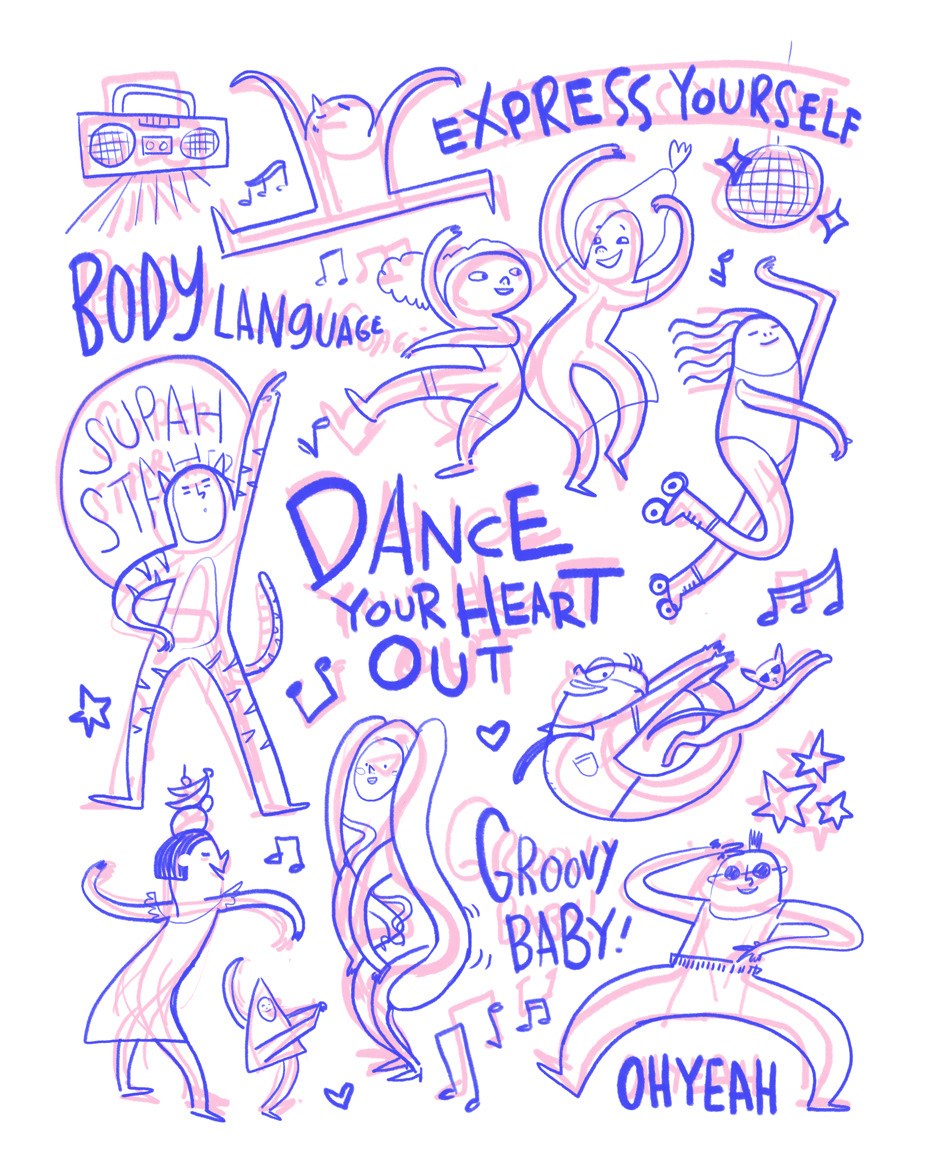 EXPRESS YOURSELF
BODY LANGUAGE
SUPAH
STAHER
DANCE
YOUR HEART
OUT
GROOVY
BABY!
OH YEAH